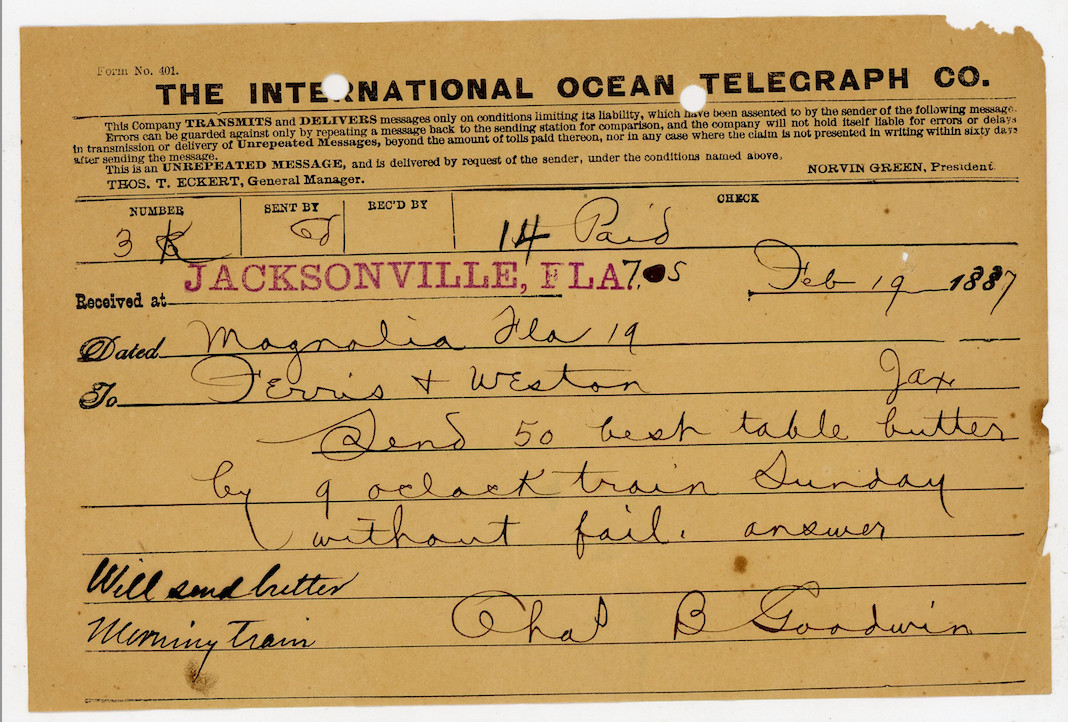 Form No. 401.
THE INTERNATIONAL OCEAN TELEGRAPH CO.
This Company TRANSMITS and DELIVERS messages only on conditions limiting its liability, which have been assented to by the sender of the following message.
Errors can be guarded against only by repeating a message back to the sending station for comparison, and the company will not hold itself liable for errors or delays
in transmission or delivery of Unrepeated Messages, beyond the amount of tolls paid thereon, nor in any case where the claim is not presented in writing within sixty days
after sending the message.
This is an UNREPEATED MESSAGE, and is delivered by request of the sender, under the conditions named above,
THOS. T. ECKERT, General Manager. NORVIN GREEN, President
NUMBER SENT BY REC'D BY CHECK
3 K Cd 14 Paid
Received at JACKSONVILLE, FLA 7.05 Feb 19 1887
Dated Magnolia Fla 19
To Ferris + Weston Jax
Send 50 best table butter
by 9 oclock train Sunday
without fail. answer
Will send butter
Morning train Chas B Goodwin